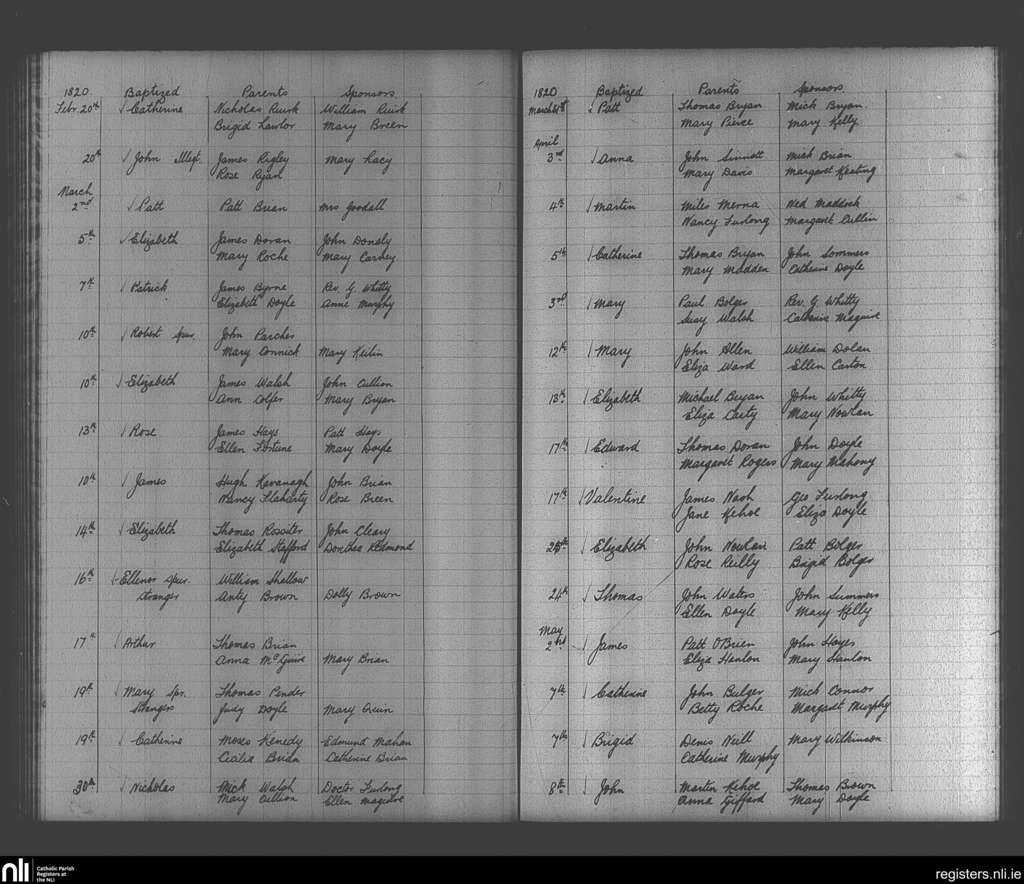 1820 Baptized Parents Sponsors
Febr. 20th Catherine Nicholas Ruirk William Ruirk
Brigid Lawlor Mary Breen
20th John Illegt. James Rigley Mary Lacy
Rose Ryan
March
2nd Patt Patt Brean Mrs Goodall
5th Elizabeth James Doran John Donely
Mary Roche Mary Carney
7th Patrick James Byrne Rev. G. Whitty
Elizabeth Doyle Anne Murphy
10th Robert spur. John Parcher
Mary Connick Mary
10th Elizabeth James Walsh John Cullion
Ann Colfer Mary Bryan
13th Rose James Hays Patt Hays
Ellen Fortune Mary Doyle
10th James Hugh Kavanagh John Brian
Nancy Flaharty Rose Breen
14th Elizabeth Thomas Rossiter John Cleary
Elizabeth Stafford Dorothea Redmond
16th Ellenor spur. William Shallow
stranger Anty Brown Dolly Brown
17th Arthur Thomas Brian
Anna McGuire Mary Brian
19th Mary Spr. Thomas Pender
Strangers Judy Doyle Mary Quin
19th Catherine Moses Kenedy Edmund Mahan
Cicilia Brian Catherine Brian
30th Nicholas Mick Walsh Doctor Furlong
Mary Cullion Ellen Maguire
1820 Baptized Parents Sponsors
March Patt Thomas Bryan Mick Bryan
Mary Pierce Mary Kelly
April
3rd Anna John Sinnott Mick Brian
Mary Davis Margaret Keating
4th Martin Miles Merna Ned Maddock
Nancy Furlong Margaret Cullin
5th Catherine Thomas Bryan John Sommers
Mary Madden Catherine Doyle
3rd Mary Paul Bolger Rev. G. Whitty
Susy Walsh Catherine Maguire
12th Mary John Allen William Dolan
Eliza Ward Ellen Carton
13th Elizabeth Michael Bryan John Whitty
Eliza Carty Mary Nowlan
17th Edward Thomas Doran John Doyle
Margaret Rogers Mary Mahony
17th Valentine James Nash Geo Furlong
Jane Kehoe Eliza Doyle
Elizabeth John Nowlan Patt Bolger
Rose Reilly Brigid Bolger
24th Thomas John Waters John Summers
Ellen Doyle Mary Kelly
May
2nd James Patt O'Brien John Hayes
Eliza Hanlon Mary Hanlon
7th Catherine John Bulger Mick Connor
Betty Roche Margaret Murphy
7th Brigid Denis Neill Mary Wilkinson
Catherine Murphy
8th John Martin Kehoe Thomas Brown
Anna Gifford Mary Doyle
nli Catholic Parish
Registers at
the NLI
registers.nli.ie